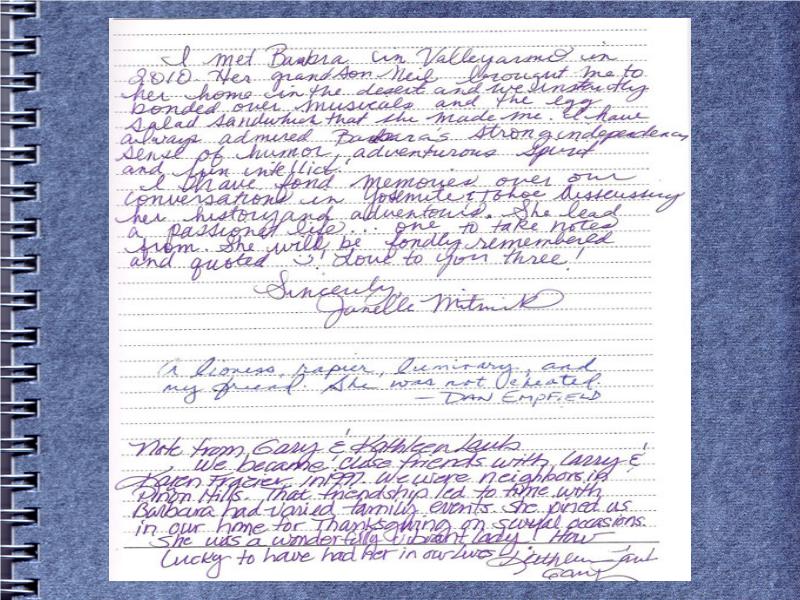 I met Barbra in Valleyarmo in
2010. Her grandson Neil brought me to
her home in the desert and we instantly
bonded over musicals and the egg
salad sandwhich that she made me. I have
always admired Barbara's strong independence,
sense of humor, adventurous spirit
and fun intellict.
I have fond memories over our
conversations in Yosemite & Tahoe Disscussing
her history and adventours. She lead
a passional life... one to take notes
from. She will be fondly remembered
and quoted :)! Love to you three!
Sincerely,
Janelle Mitnik
A lioness, rapier, luminary, and
my friend. She was not cheated.
— DAN EMPFIELD
Note from Gary & Kathleen Laub
We became close friends with Larry &
Karen Frazier in 1997. We were neighbors in
Pinon Hills. That friendship led to time with
Barbara had varied family events. She joined us
in our home for Thanksgiving on several occasions.
She was a wonderfully vibrant lady! How
lucky to have had her in our lives!
Kathleen Laub
Gary